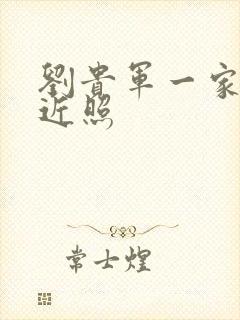 劉貴軍一家
近照
常士煌